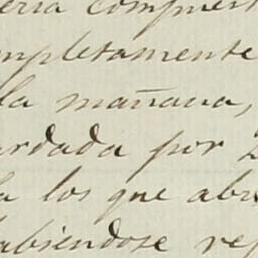 ería compues
mpletamente
la mañana,
ardada por
a los que abr
abiéndose rep